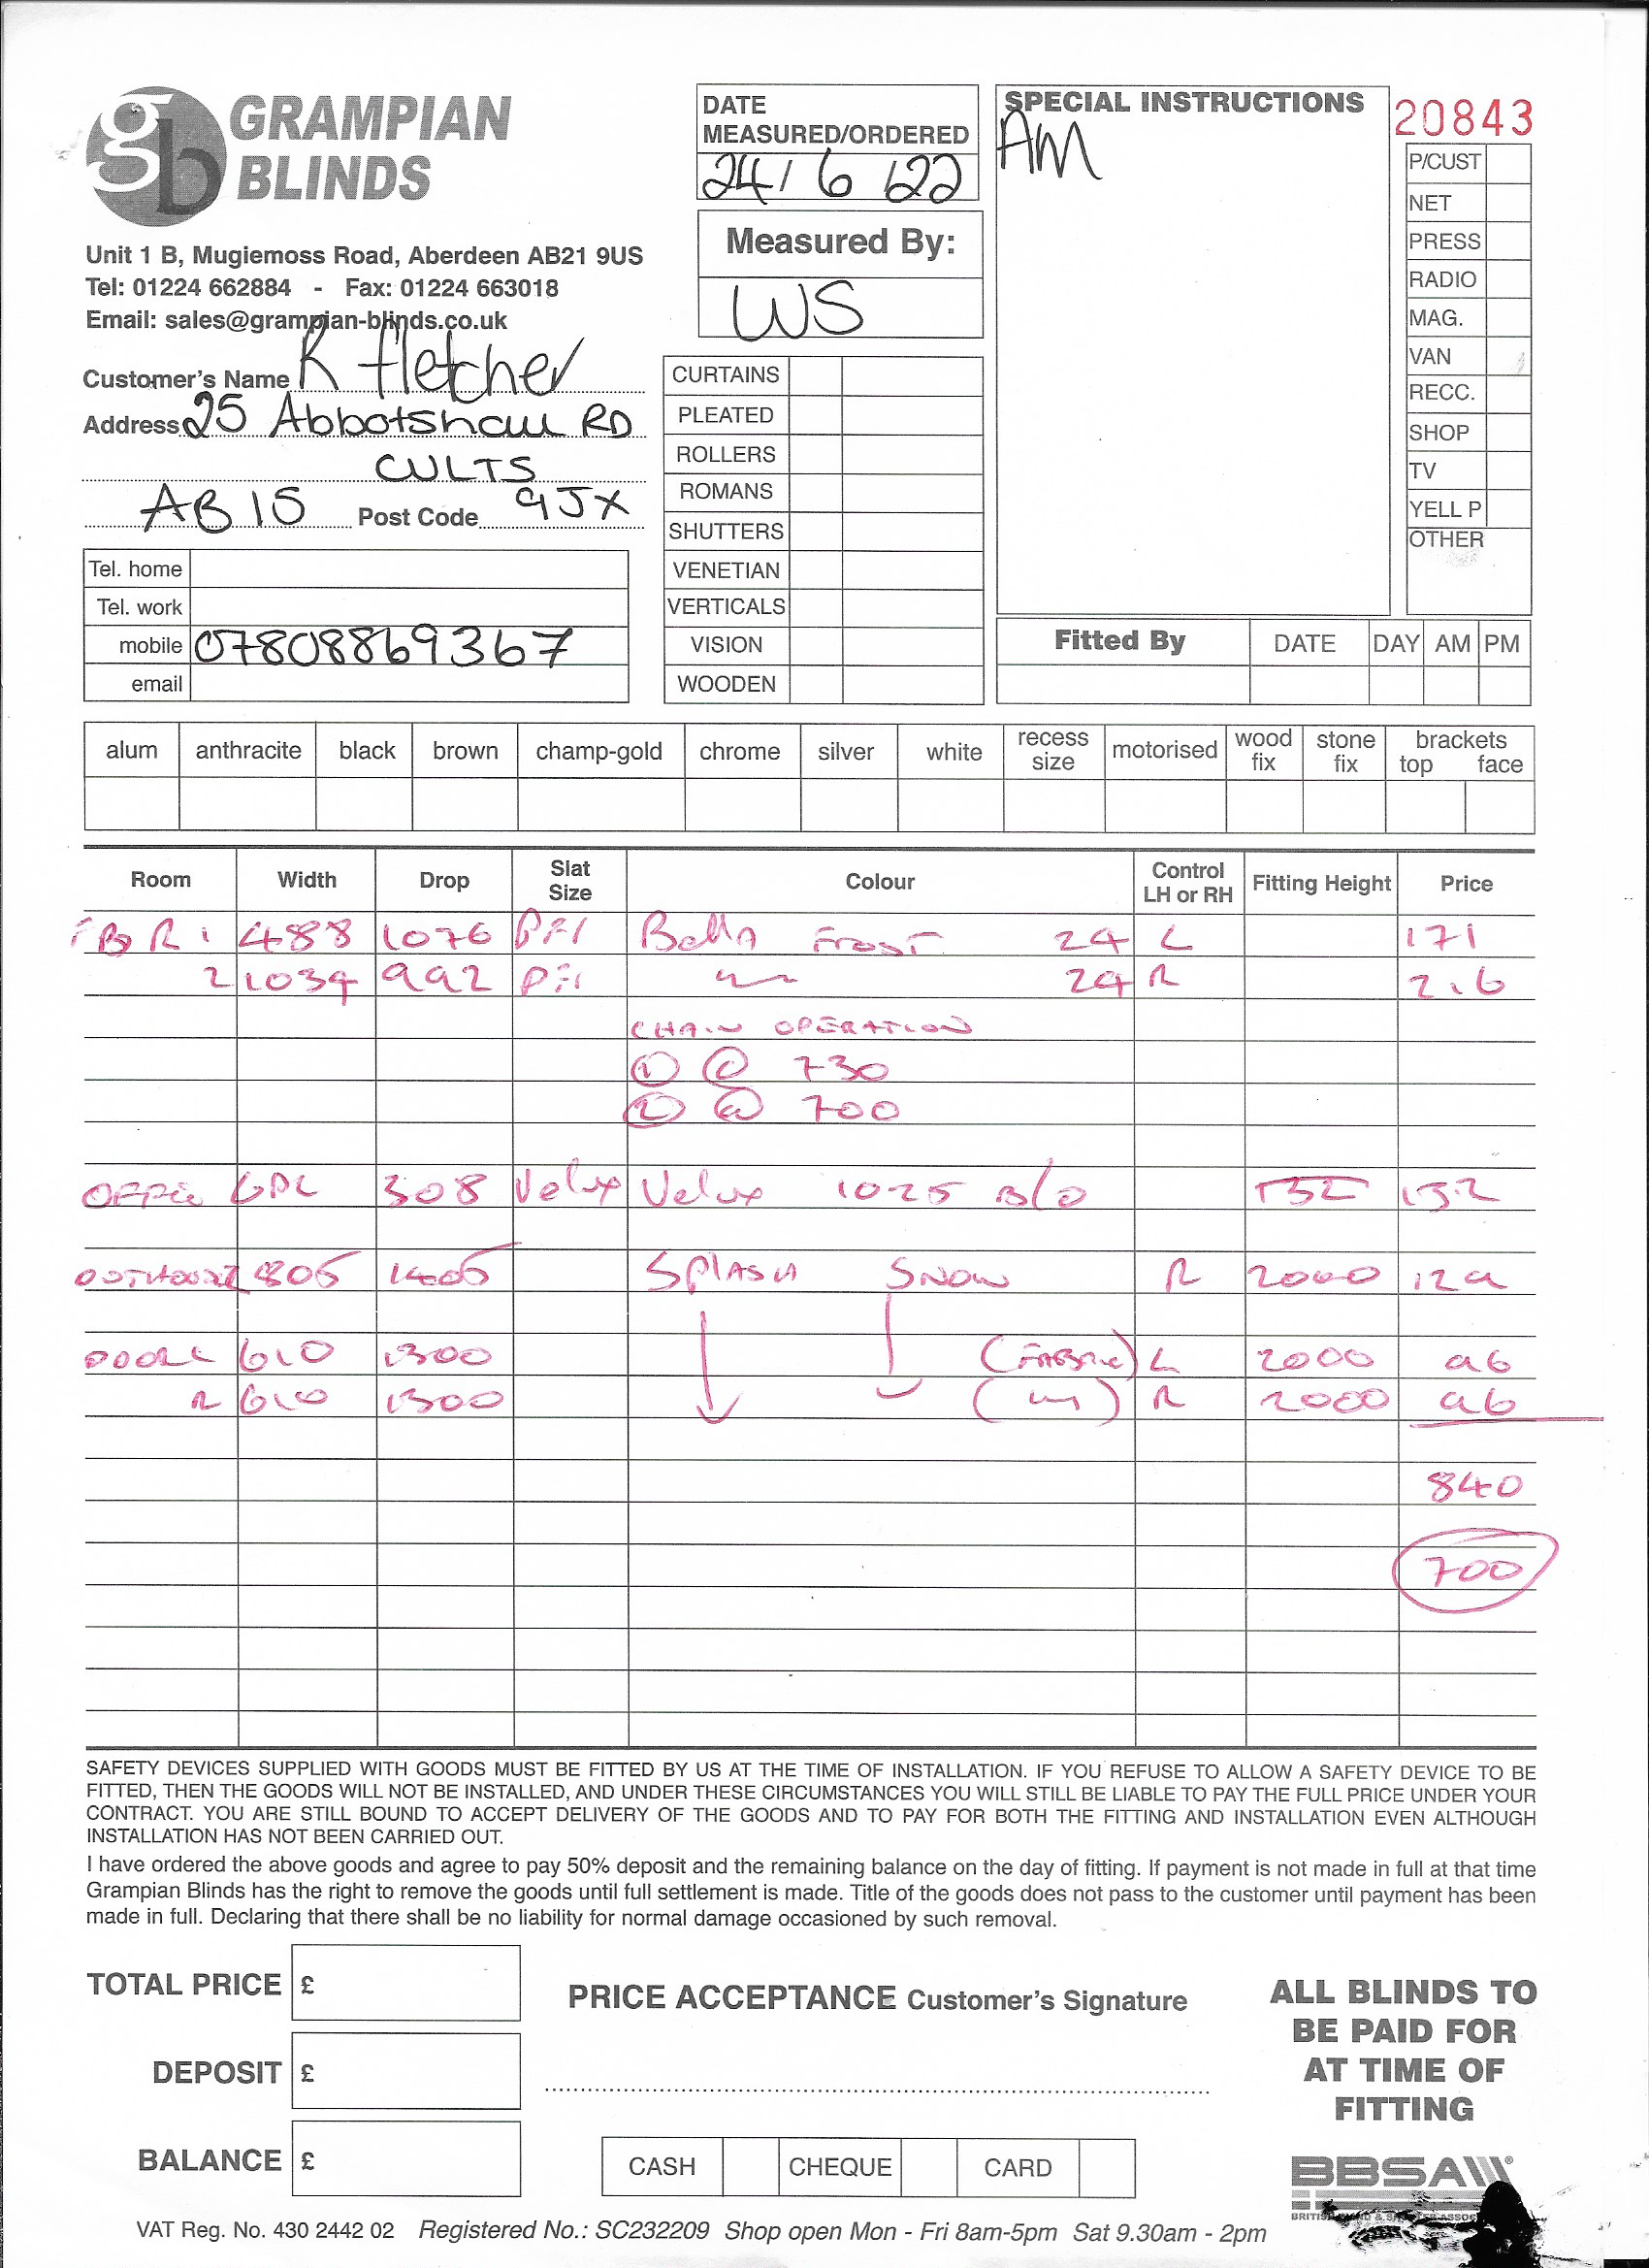 gb GRAMPIAN BLINDS
Unit 1 B, Mugiemoss Road, Aberdeen AB21 9US
Tel: 01224 662884 - Fax: 01224 663018
Email: sales@grampian-blinds.co.uk
Customer's Name R Fletcher
Address 25 Abbotshall RD
CULTS
AB15 Post Code 9JX
Tel. home
Tel. work
mobile 07808869367
email
DATE MEASURED/ORDERED
24/6/22
Measured By:
WS
CURTAINS
PLEATED
ROLLERS
ROMANS
SHUTTERS
VENETIAN
VERTICALS
VISION
WOODEN
SPECIAL INSTRUCTIONS
AM
20843
P/CUST
NET
PRESS
RADIO
MAG.
VAN
RECC.
SHOP
TV
YELL P
OTHER
Fitted By DATE DAY AM PM
alum anthracite black brown champ-gold chrome silver white recess size motorised wood fix stone fix brackets top face
Room Width Drop Slat Size Colour Control LH or RH Fitting Height Price
BR 1 488 1076 Bella Frost 24 L 171
2 1034 992 24 R 216
CHAIN OPERATION
① @ 730
② @ 700
OFFICE 308 Velux Velux 1025 B/O 132
805 1405 SPLASH SNOW R 2000 129
DOOR L 610 1300 (FABRIC) L 2000 96
R 610 1300 R 2000 96
840
700
SAFETY DEVICES SUPPLIED WITH GOODS MUST BE FITTED BY US AT THE TIME OF INSTALLATION. IF YOU REFUSE TO ALLOW A SAFETY DEVICE TO BE
FITTED, THEN THE GOODS WILL NOT BE INSTALLED, AND UNDER THESE CIRCUMSTANCES YOU WILL STILL BE LIABLE TO PAY THE FULL PRICE UNDER YOUR
CONTRACT. YOU ARE STILL BOUND TO ACCEPT DELIVERY OF THE GOODS AND TO PAY FOR BOTH THE FITTING AND INSTALLATION EVEN ALTHOUGH
INSTALLATION HAS NOT BEEN CARRIED OUT.
I have ordered the above goods and agree to pay 50% deposit and the remaining balance on the day of fitting. If payment is not made in full at that time
Grampian Blinds has the right to remove the goods until full settlement is made. Title of the goods does not pass to the customer until payment has been
made in full. Declaring that there shall be no liability for normal damage occasioned by such removal.
TOTAL PRICE £
DEPOSIT £
BALANCE £
PRICE ACCEPTANCE Customer's Signature
CASH CHEQUE CARD
ALL BLINDS TO
BE PAID FOR
AT TIME OF
FITTING
BBSA
VAT Reg. No. 430 2442 02 Registered No.: SC232209 Shop open Mon - Fri 8am-5pm Sat 9.30am - 2pm